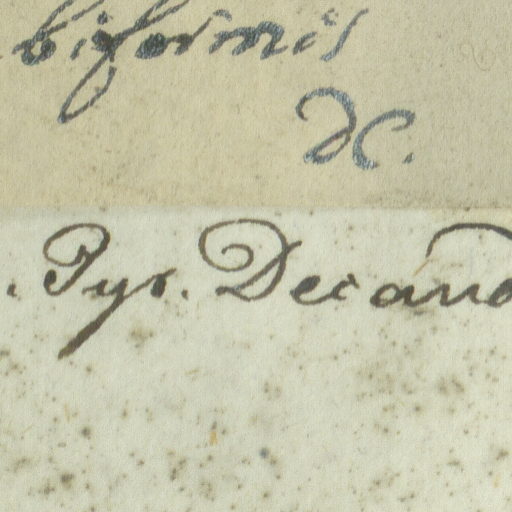 biformis
DC.
. Pyr. Decand